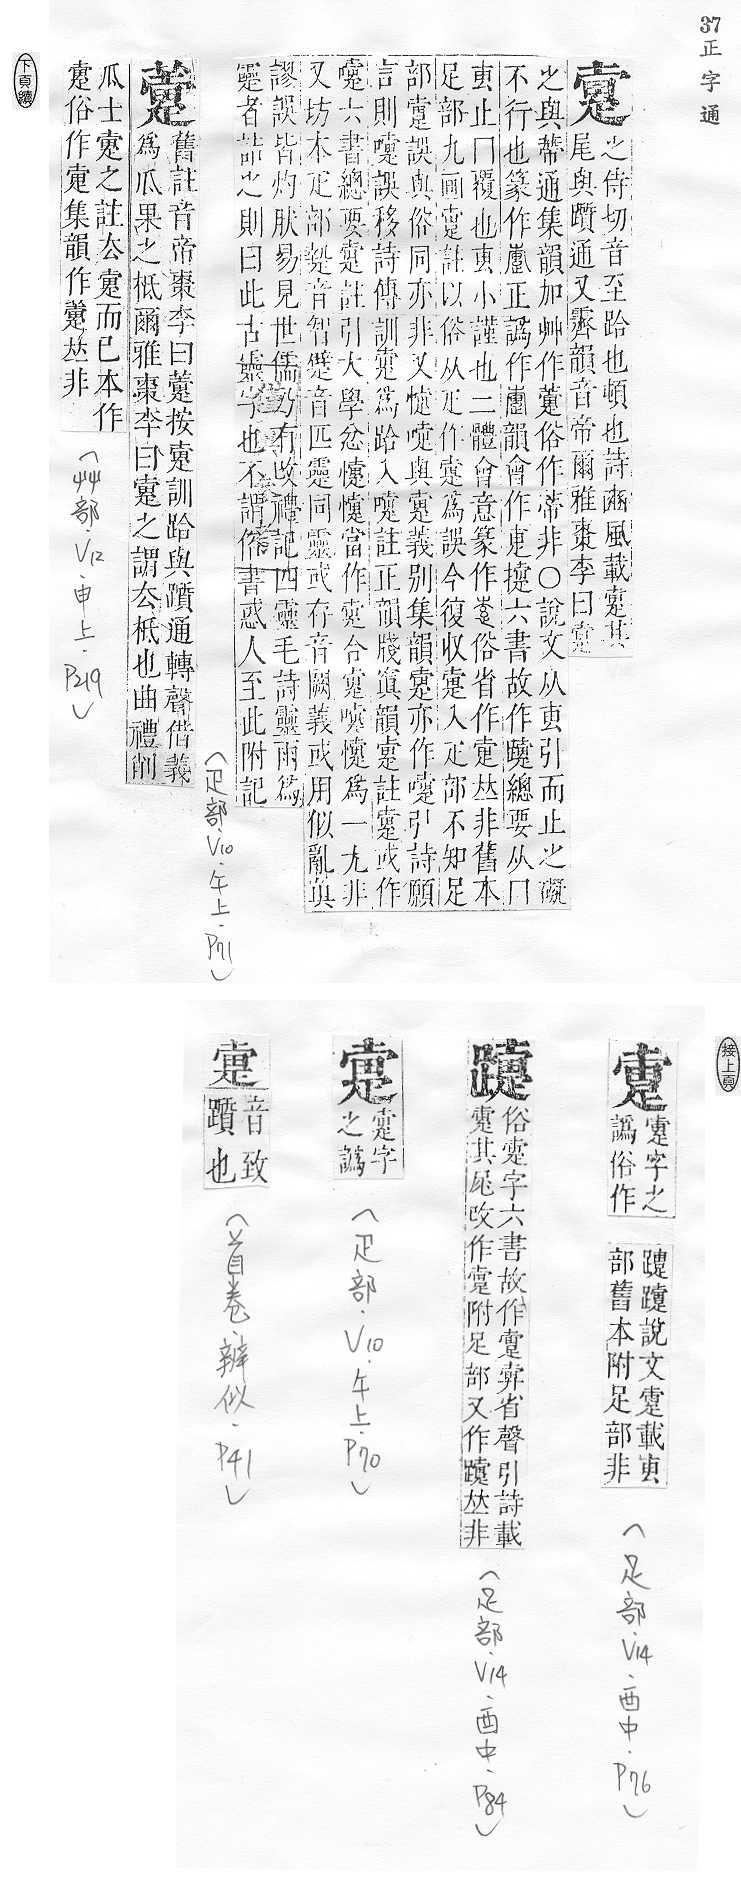 37正字通
疐
之侍切音至跲也頓也詩豳風載疐其
尾與躓通又霽韻音帝爾雅棗李曰疐
之與蔕通集韻加艸作䗁俗作蒂非○說文从叀引而止之礙
不行也篆作
正譌作
韻會作
六書故作
總要从冂
叀止冂覆也叀小謹也二體會意篆作
俗省作
𠀤非舊本
足部九画疐註以俗从疋作疐爲誤今復收疐入疋部不知足
部疐誤與俗同亦非又懥嚏與疐義別集韻疐亦作嚏引詩願
言則嚏誤移詩傳訓疐爲跲入嚏註正韻牋寘韻疐註疐或作
嚏六書總要疐註引大學忿懥懥當作疐合疐嚏懥爲一尤非
又坊本疋部
音智
音匹靈同靈或存音闕義或用似亂眞
謬誤皆灼肰易見世儒乃有改禮記四靈毛詩靈雨爲
者詰之則曰此古靈字也不謂俗書惑人至此附記
〈疋部.V10.午上.P71〉
舊註音帝棗李曰
按疐訓跲與躓通轉聲借義
爲瓜果之柢爾雅棗李曰疐之謂去柢也曲禮削
瓜士疐之註去疐而已本作
疐俗作疐集韻作
𠀤非
〈艸部.V12.申上.P219〉
下頁續
接上頁
疐
疐字之
譌俗作
說文疐載叀
部舊本附足部非
〈足部.V14.酉中.P76〉
俗疐字六書故作疐
省聲引詩載
疐其尾改作疐附足部又作
𠀤非
〈足部.V14.酉中.P84〉
疐
疐字
之譌
〈疋部.V10.午上.P70〉
疐
音致
躓也
〈首卷.辨似.P41〉